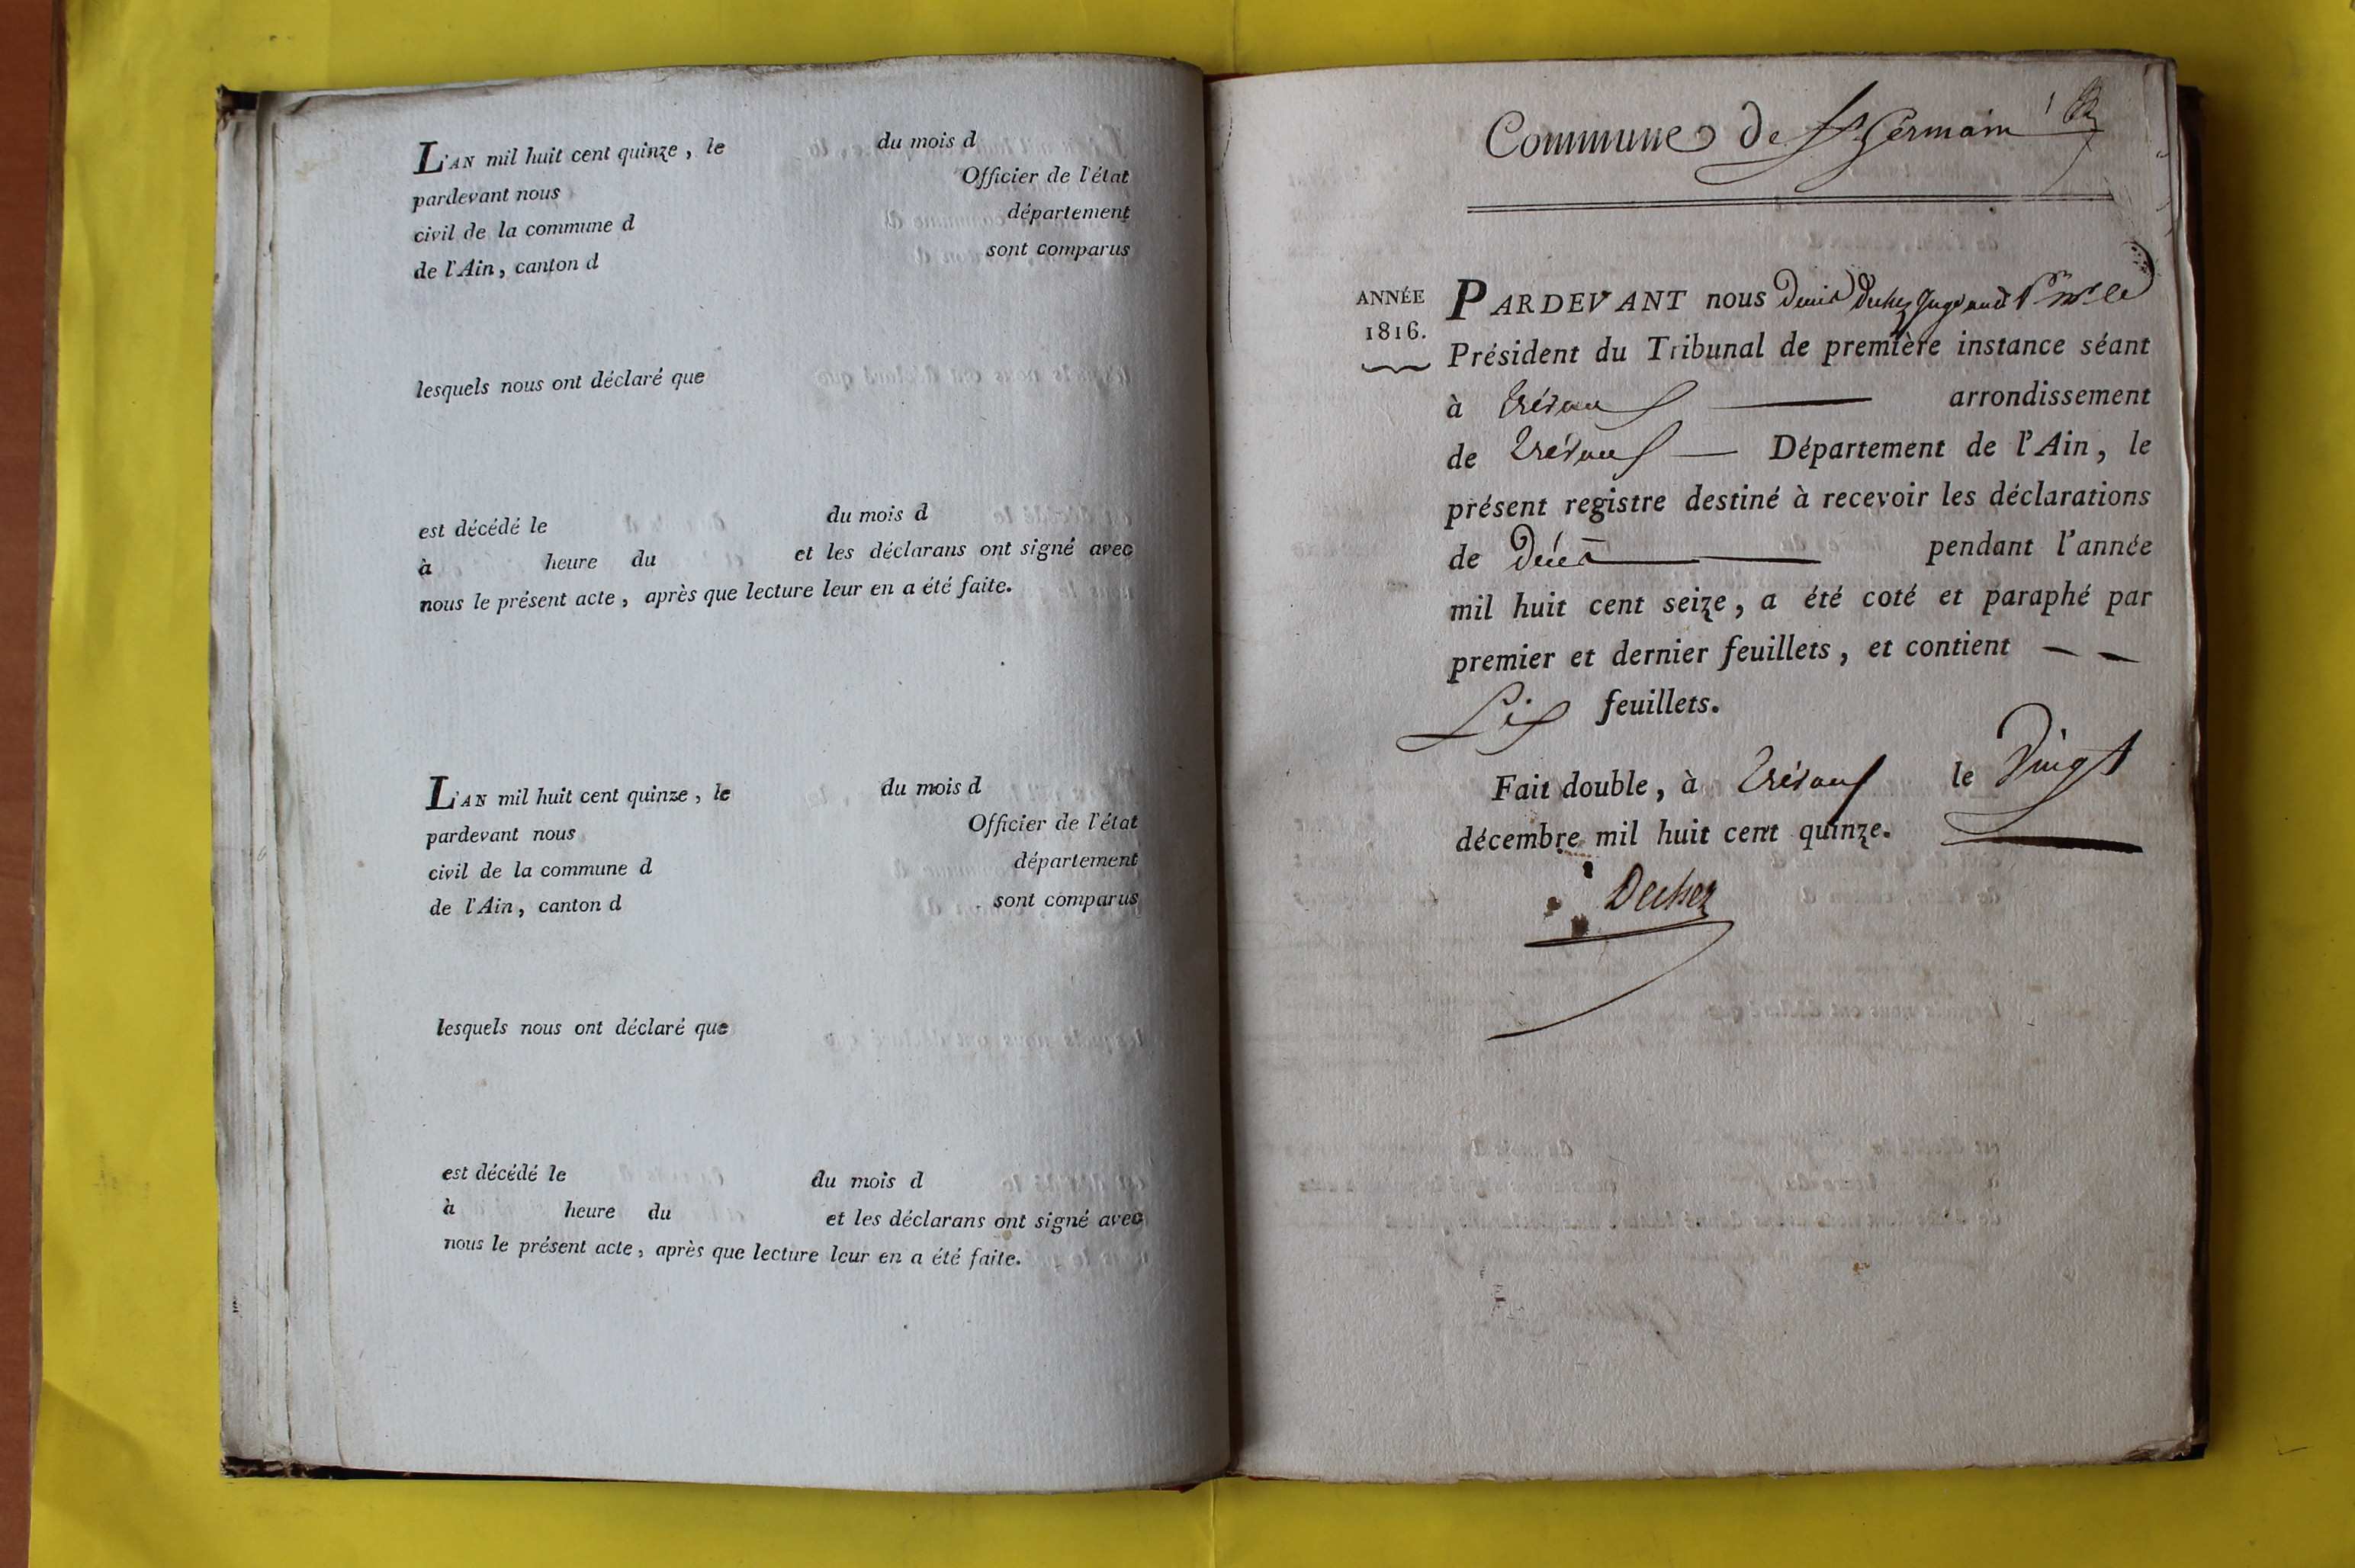 L'AN mil huit cent quinze, le du mois d
pardevant nous Officier de l'état
civil de la commune d département
de l'Ain, canton d sont comparus
lesquels nous ont déclaré que
est décédé le du mois d
à heure du et les déclarans ont signé avec
nous le présent acte, après que lecture leur en a été faite.
L'AN mil huit cent quinze, le du mois d
pardevant nous Officier de l'état
civil de la commune d département
de l'Ain, canton d sont comparus
lesquels nous ont déclaré que
est décédé le du mois d
à heure du et les déclarans ont signé avec
nous le présent acte, après que lecture leur en a été faite.
Commune de St Germain 1
ANNÉE
1816.
PARDEVANT nous Denis Dechez Juge
Président du Tribunal de première instance séant
à Trévoux arrondissement
de Trévoux Département de l'Ain, le
présent registre destiné à recevoir les déclarations
de Décès pendant l'année
mil huit cent seize, a été coté et paraphé par
premier et dernier feuillets, et contient
Six feuillets.
Fait double, à Trévoux le Vingt
décembre mil huit cent quinze.
Dechez